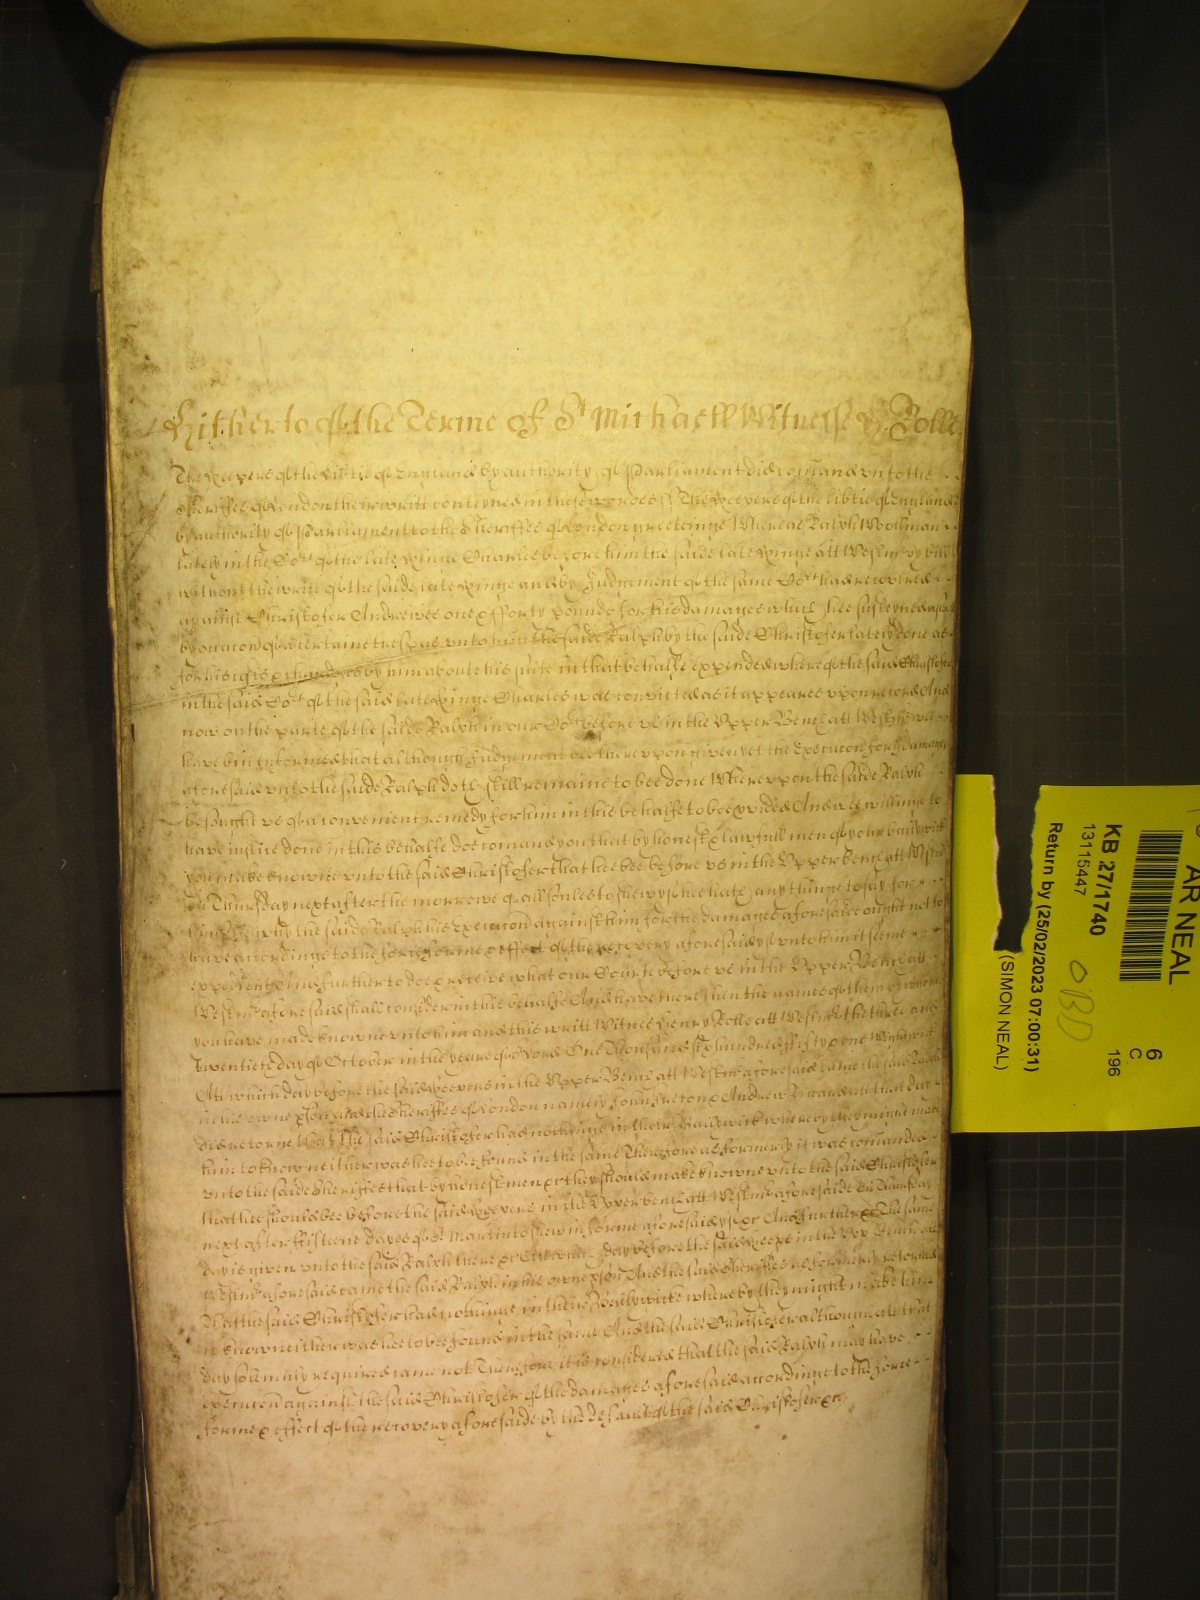 Hitherto of the Terme of St Michaell Witnesse H: Rolle
The Keepers of the libtie of England by authority of Parliament did comand unto the
Sheriffes of London their writt conteyned in these wordes The Keepers of the libtie of England
by authority of Parliament to the Sheriffes of London greetinge Whereas Ralph Woollman
lately in the Cort of the late Kinge Charles before him the saide late Kinge att Westmr by bill
without the writt of the saide late Kinge and by Judgement of the same Cort had recovered
against Christofer Andrewes one & forty pounds for his damages which hee susteyned aswell
by occacon of a certaine trespas unto him the saide Ralph by the saide Christofer lately done as
for his costs & chardges by him about his suite in that behalfe expended whereof the said Christofer
in the said Cort of the said late Kinge Charles was convicted as it appeares upon record And
now on the parte of the saide Ralph in our Cort before us in the Upper Bench att Westmr wee
have bin informed that although Judgement bee thereupon given yet the Execucon for the damages
aforesaid unto the saide Ralph doth still remaine to bee done Whereupon the saide Ralph
besought us of a convenient remedy for him in this behalfe to bee pvided And wee willinge to
have justice done in this behalfe doe comand you that by honest & lawfull men of your bailywick
you make knowne unto the said Christofer that hee bee before us in the Upper bench att Westmr
on Thursday next after the morrowe of all soules to shew yf hee hath any thinge to say for
himselfe why the saide Ralph his execucon against him for the damages aforesaide ought not to
have accordinge to the force forme & effect of the recovery aforesaid yf unto him it seeme
expedient And further to doe & receive what our Court before us in the Upper Bench att
Westmr aforesaid shall consider in this behalfe And have there then the names of them by whom
you have made knowne unto him and this writt Witnes Henry Rolle att Westmr the three and
Twentieth day of October in the yeare of or Lord One Thousand six hundred fifty & one Wightwick
Att which day before the said Keepers in the Upper Bench att Westmr aforesaid came the said Ralph
in his owne pson And the Sheriffes of London namely John Ireton & Andrew Ricards att that day
did retorne That the said Christofer had nothinge in their Bailywick whereby they might make
him to know neither was hee to bee found in the same Therefore as formerly it was comanded
unto the saide Sheriffes that by honest men &c they should make knowne unto the said Christofer
that hee should bee before the said Keepers in the Upper bench att Westmr aforesaide on Thursday
next after fifteene dayes of St Martin to shew in forme aforesaid yf &c And further &c The same
day is given unto the said Ralph there &c Att which day before the said Keeps in the Upp Bench att
Westmr aforesaid came the said Ralph in his owne pson And the said Sheriffes as formerly retorned
That the said Christofer had nothinge in their Bailywick whereby they might make him
to know neither was hee to bee found in the same And the said Christofer although att that
day solemnly required came not Therefore it is considered that the said Ralph may have
execucon against the said Christofer of the damages aforesaid accordinge to the force
forme & effect of the recovery aforesaide by the default of the said Christofer &c
AR NEAL
6
C
196
KB 27/1740
13115447
Return by (25/02/2023 07:00:31)
(SIMON NEAL)
OBD